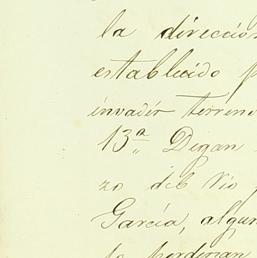 la dirección
establecido p
invadir terreno
13ª Digan
zo del Río
García, algun
lo perdirían